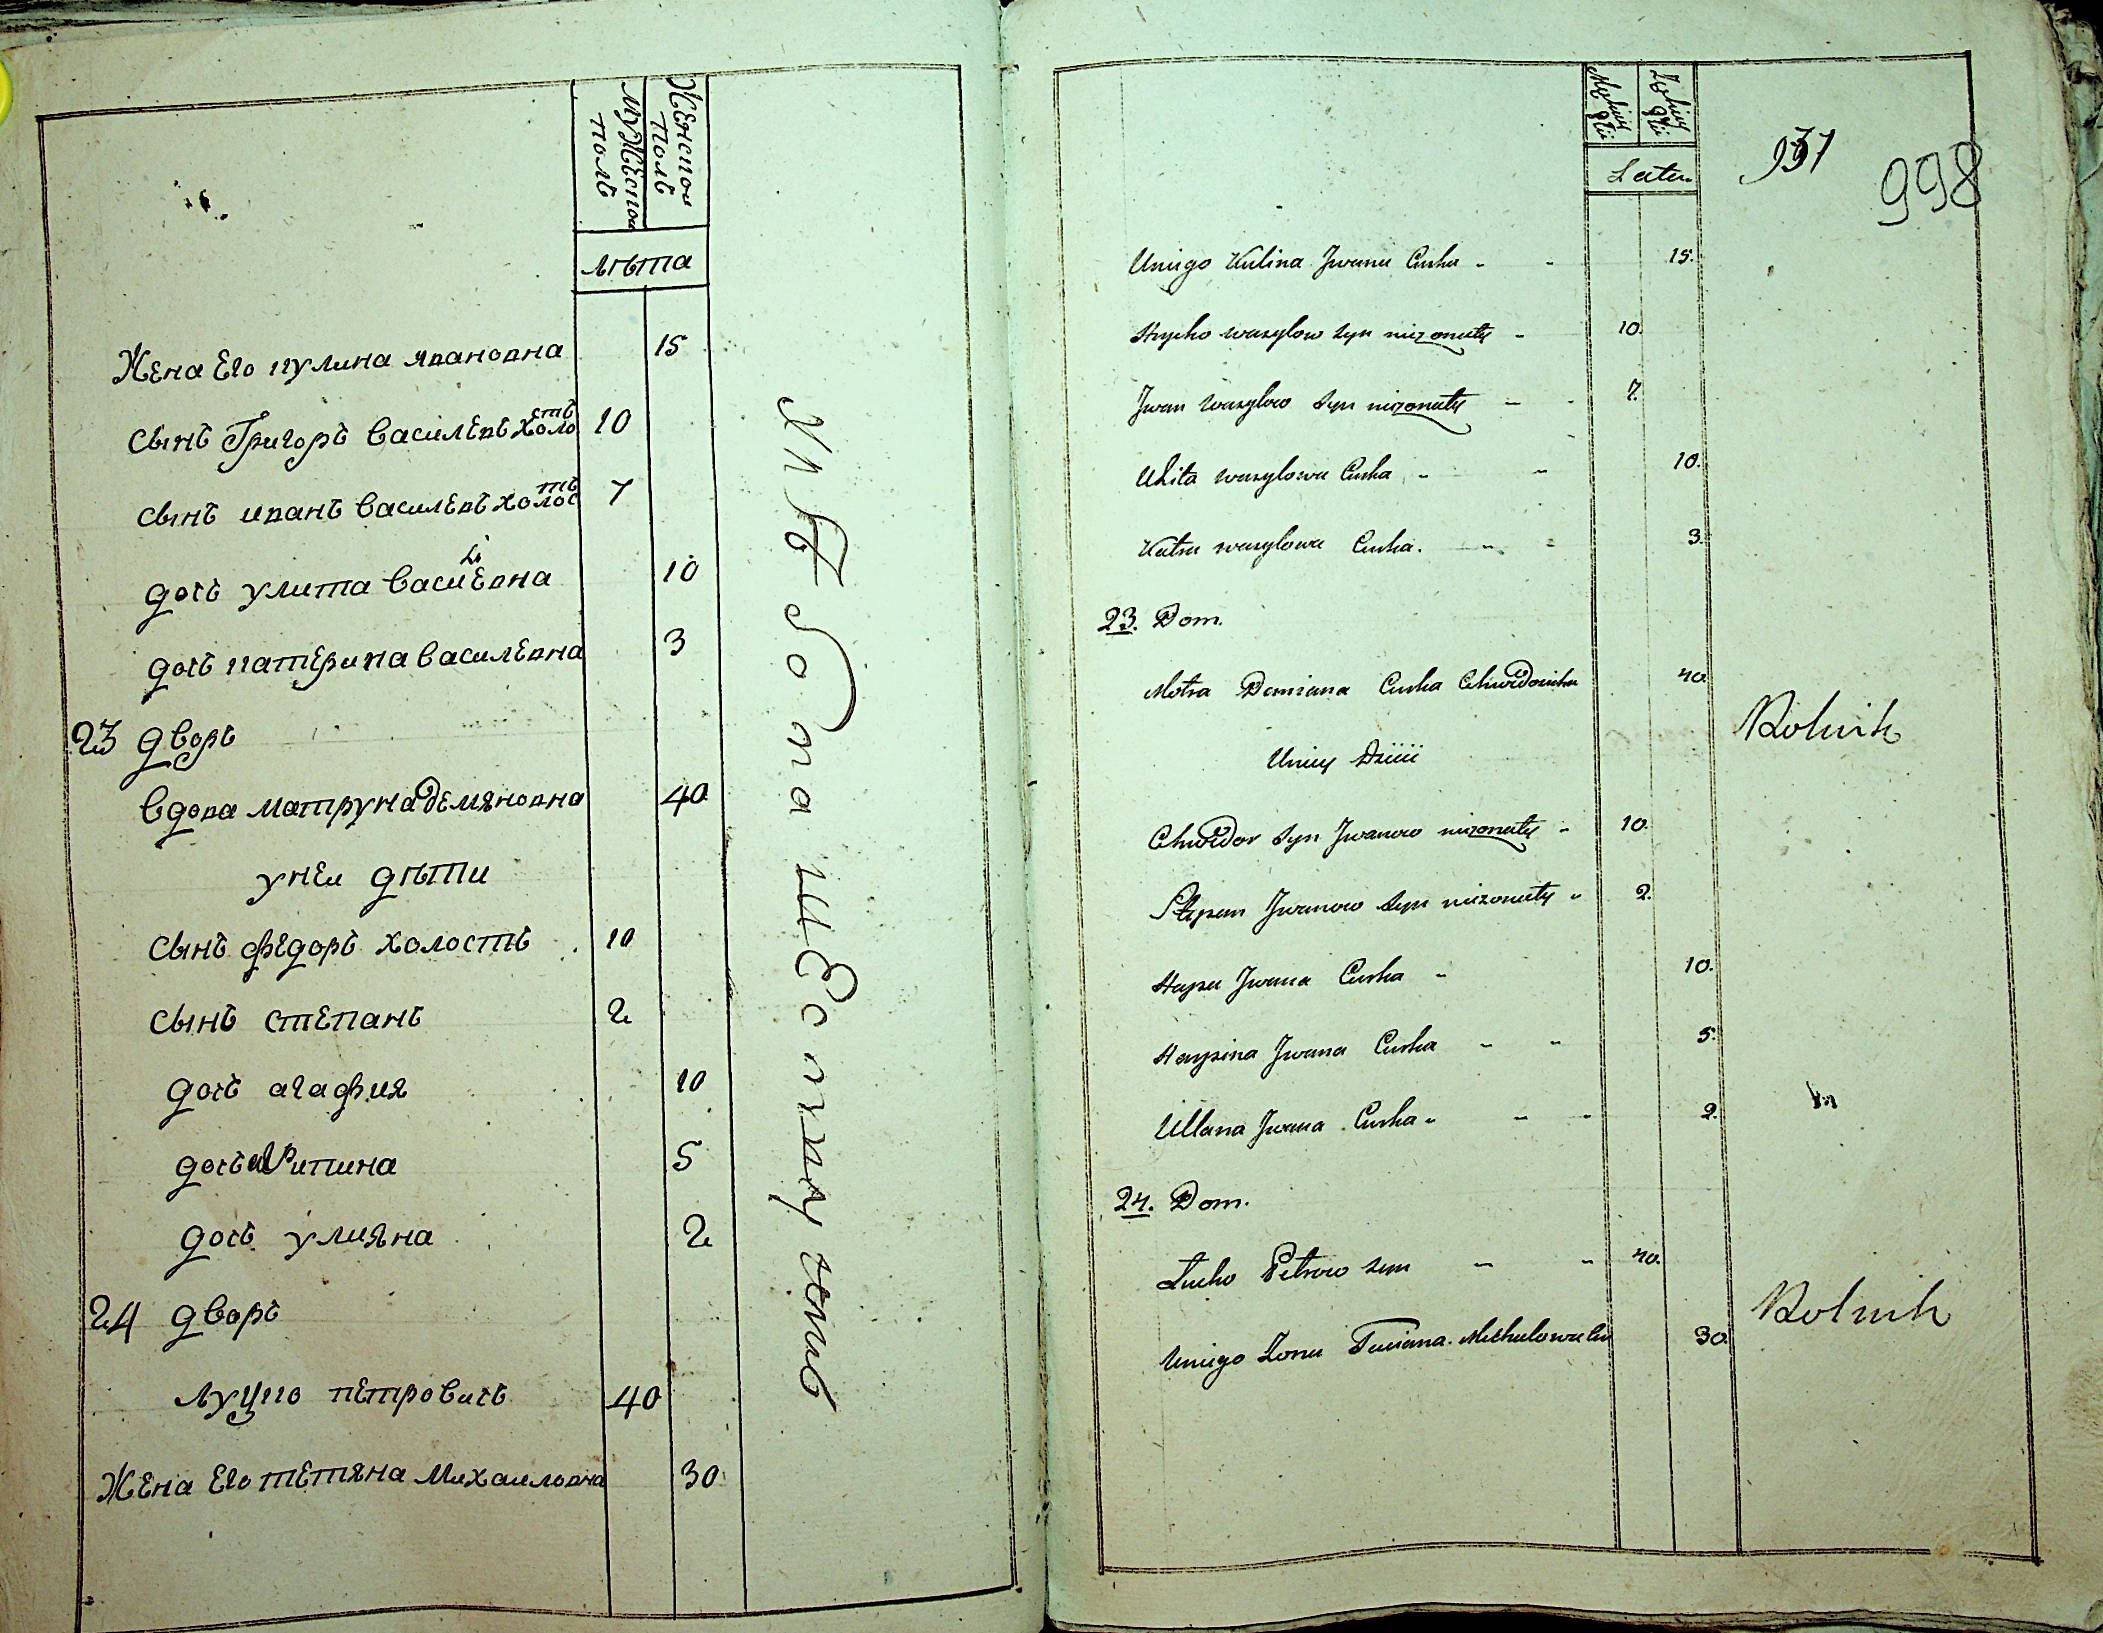 мужеска полѣ
женска полѣ
лѣта
жена его кулина ивановна 15
сынъ Григорь василевъ холостъ 10
сынъ иванъ василевъ холостъ 7
доčь улита василевна 10
дочь катерина василевна 3
23 дворъ
вдова матруна демяновна 40
у нея дѣти
сынъ федоръ холостъ 10
сынъ степанъ 2
дочь агафия 10
дочь 5
дочь улияна 2
24 дворъ
луцко петровичъ 40
жена его тетяна михаиловна 30
Męskiey płci
Żeńskiey płci
Latu.
937
998
Uniego Kulina Jwana Curka 15.
Hryćko wasylow syn nieżonaty 10.
Jwan wasylow syn nieżonaty 7.
Ulita wasylowa Curka 10.
Katra wasylowa Curka. 3.
23. Dom.
Motra Demiana Curka 40.
Rolnik
Uniey Dzieci
Chwedor syn Jwanow nieżonaty 10.
Stepan Jwanow syn nieżonaty 2.
Hapa Jwana Curka 10.
Harpina Jwana Curka 5.
Ullana Jwana Curka 2.
24. Dom.
Łucko Petrow syn 40.
Rolnik
Uniego Żona Taciana Michałowa 30.